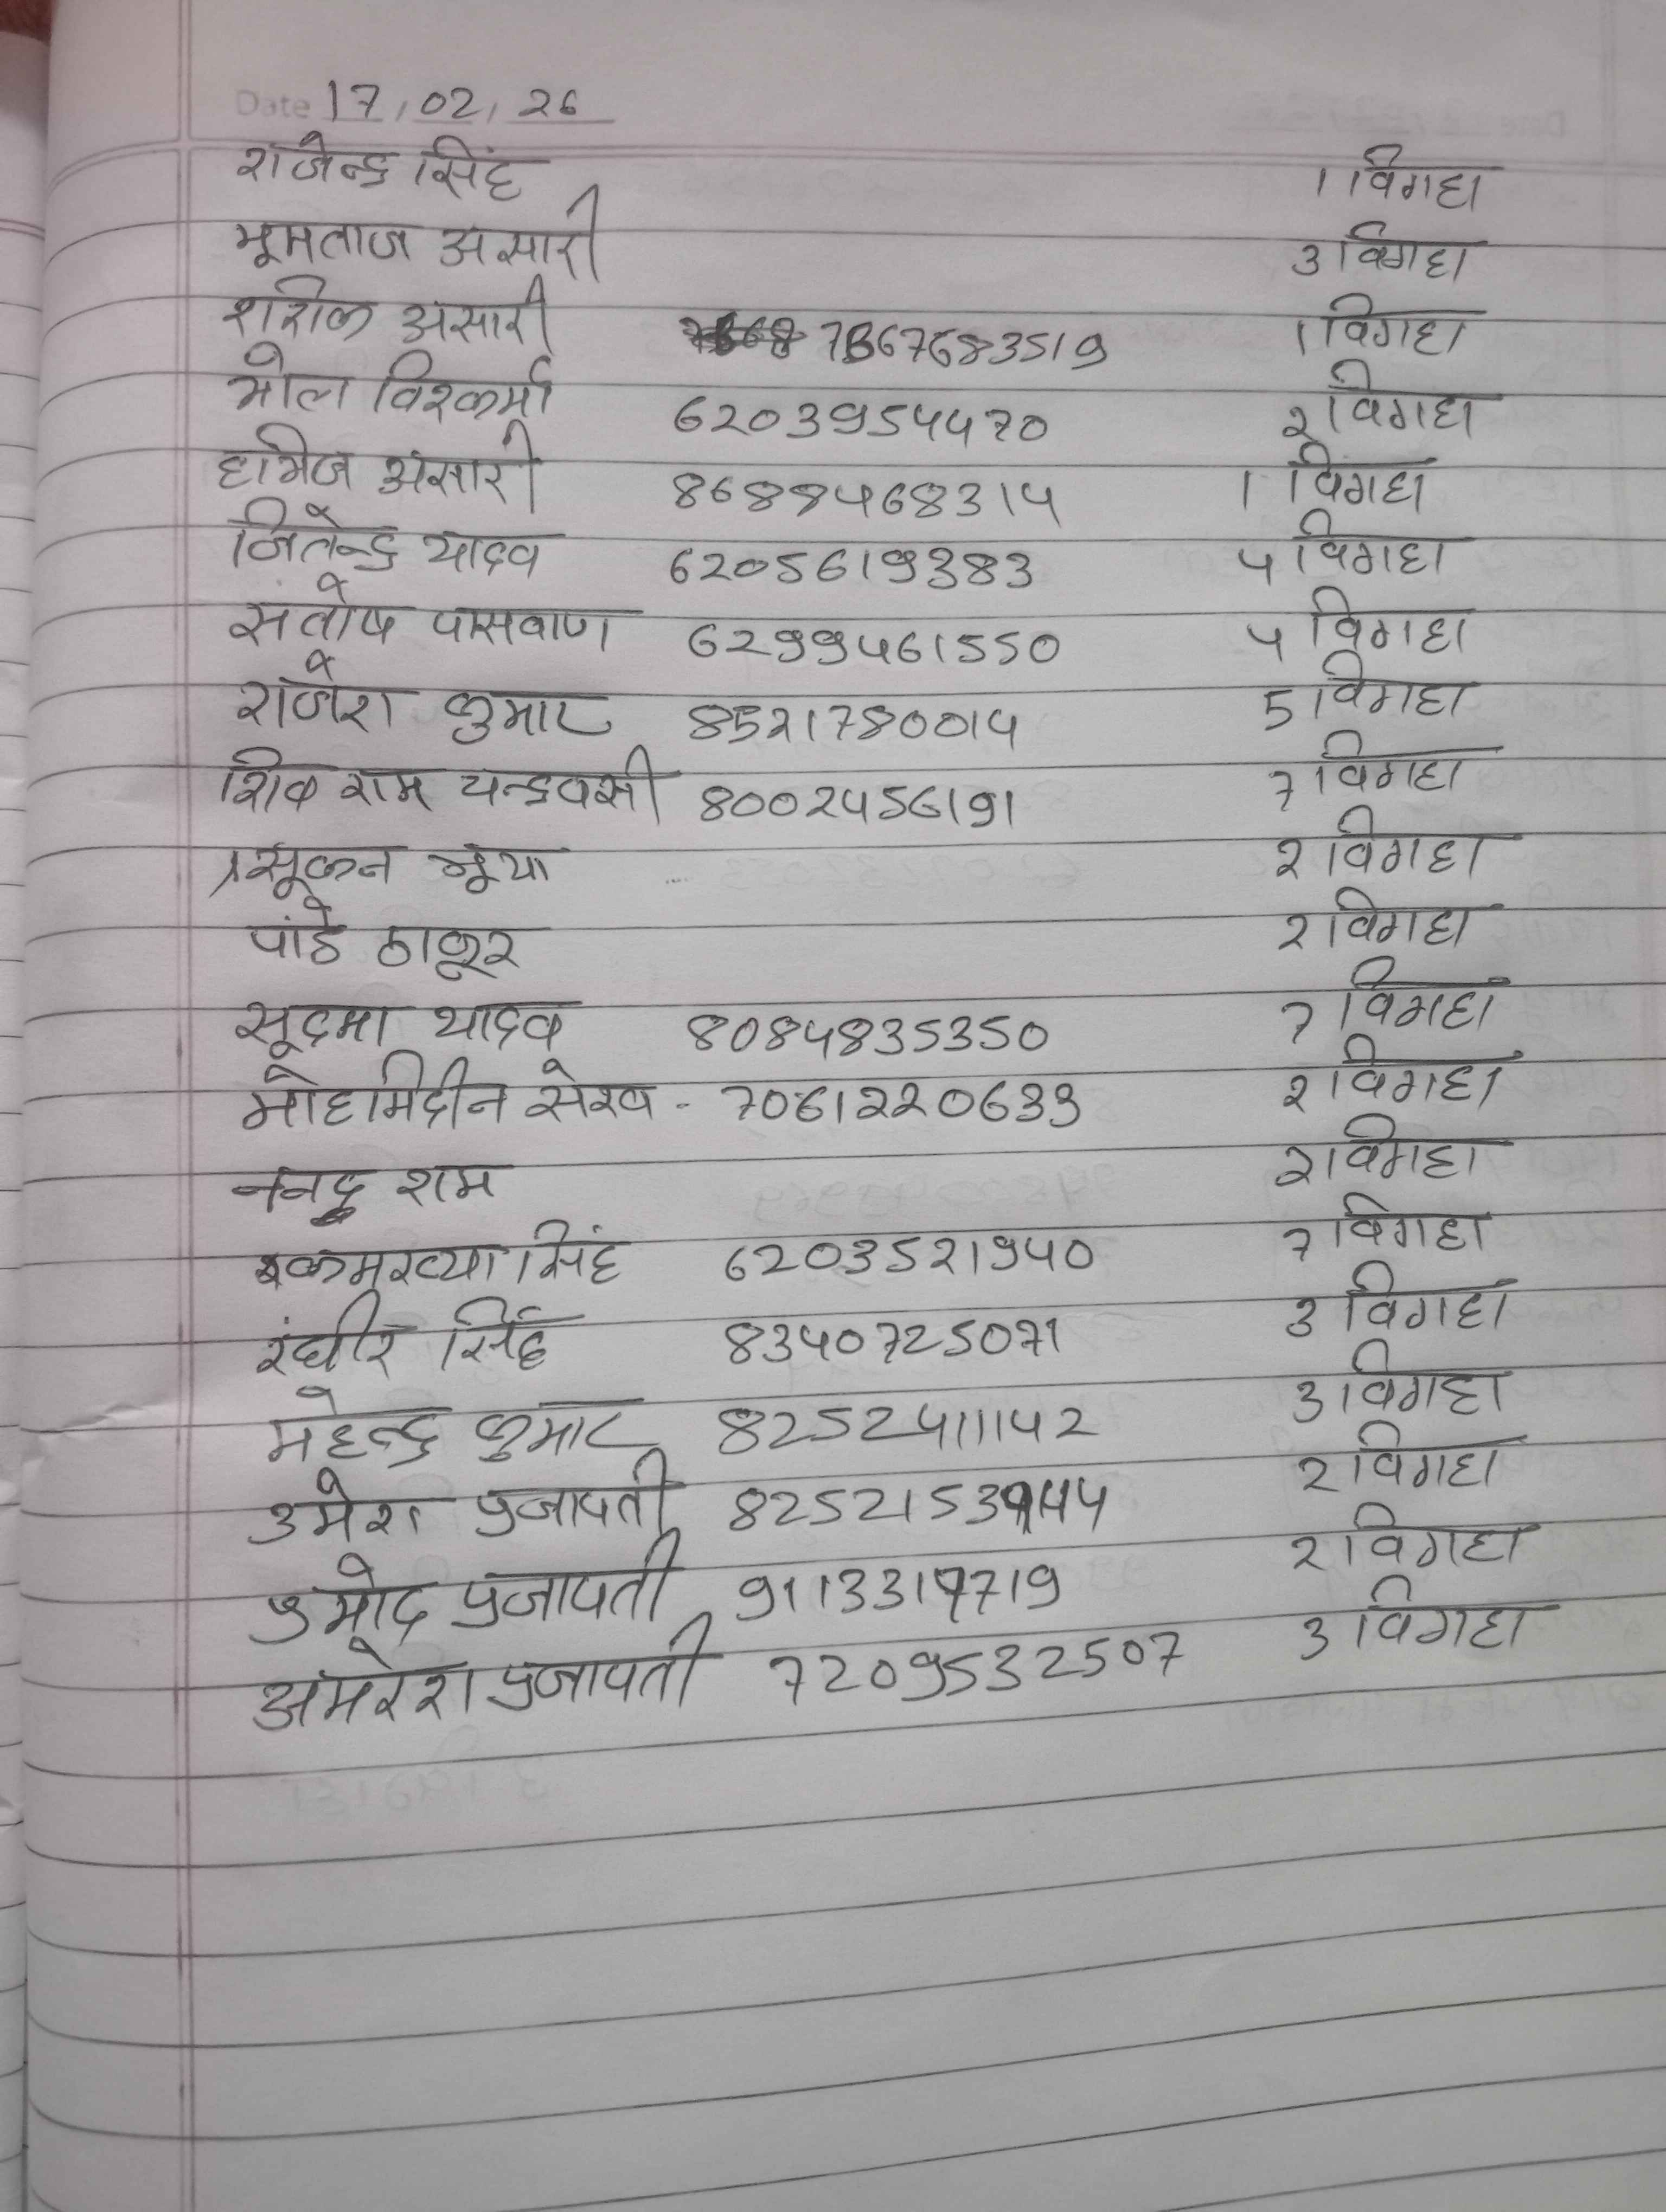 Date 17/02/26
राजेन्द्र सिंह 1 विगहा
मूमताज अंसारी 3 विगहा
शरीक अंसारी 7667683519 1 विगहा
भोला विश्कर्मा 6203954470 2 विगहा
हामिज अंसारी 8689468314 1 विगहा
जितेन्द्र यादव 6205619383 4 विगहा
संतोष पासवाण 6299461550 4 विगहा
राजेश कुमार 8521780014 5 विगहा
शिव राम चन्द्रवंसी 8002456191 7 विगहा
सूकन भूया 2 विगहा
पांडे ठाकूर 2 विगहा
सूदमा यादव 8084835350 7 विगहा
मोहामिदीन सेख - 7061220633 2 विगहा
ननदु राम 2 विगहा
कमख्या सिंह 6203521940 7 विगहा
रंधीर सिंह 8340725071 3 विगहा
महेन्द्र कुमार 8252411142 3 विगहा
उमेश प्रजापती 2 विगहा
प्रमोद प्रजापती 9113319719 2 विगहा
अमरेश प्रजापती 7209532507 3 विगहा